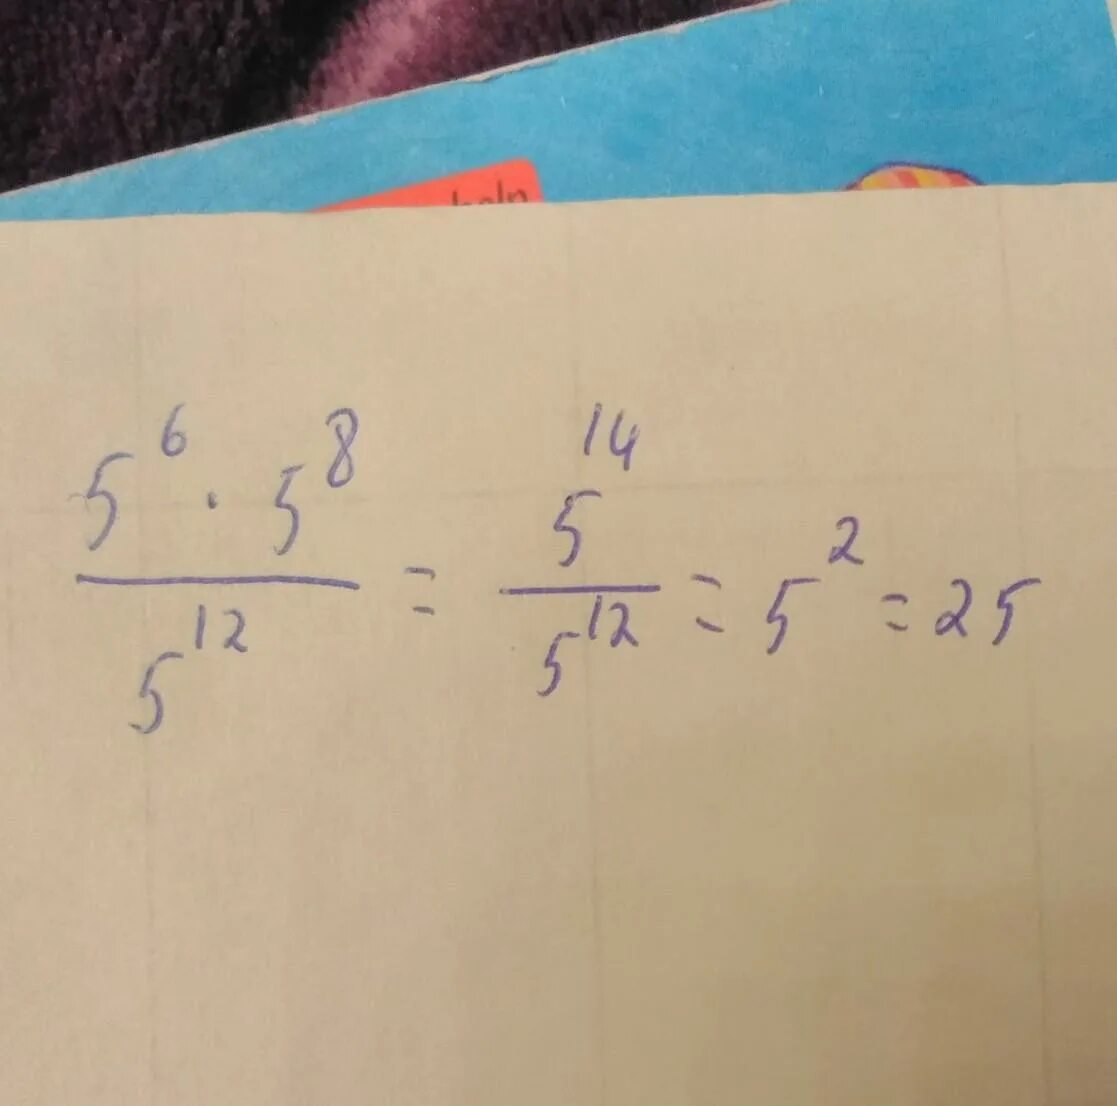 help
5⁶ · 5⁸ / 5¹² = 5¹⁴ / 5¹² = 5² = 25